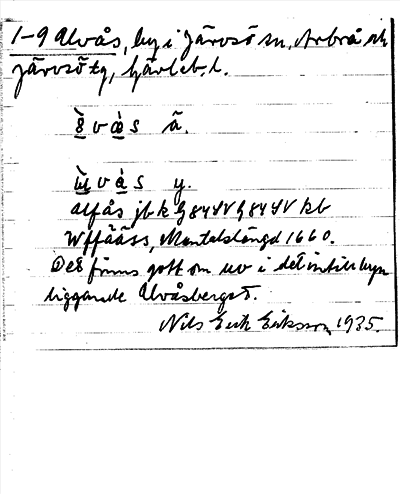 1-9 Alvås, by i Järvsö sn, Arbrå och
Järvsö tg, Gävleb. l.
vås ä.
vås y.
alfås jbk
Wffååss, Mantalslängd 1660.
Det finns gott om uv i det intill byn
liggande Alvåsberget.
Nils Erik Eriksson 1935.